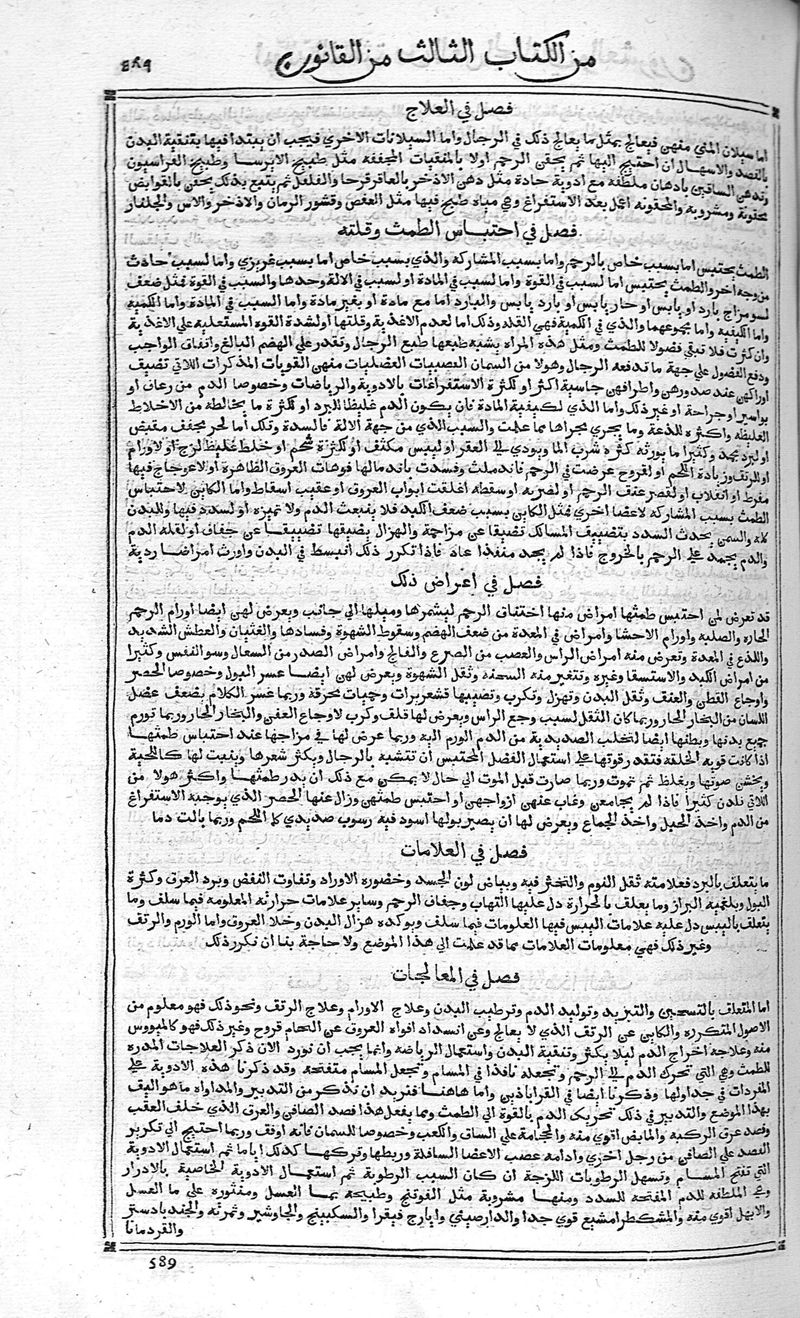 من الكتاب الثالث من القانون
٥٨٩
فصل في العلاج
اما سيلان المني منهن فيعالج بمثل ما يعالج ذلك في الرجال واما السيلانات الاخري فيجب ان يبتدا فيها بتنقية البدن
بالفصد والاسهال ان احتيج اليها ثم يحقن الرحم اولا بالمنقيات المجففه مثل طبيخ الايرسا وطبيخ الفراسيون
وتدهن الساقين بادهان ملطفه مع ادوية حادة مثل دهن الاذخر بالعاقرقرحا والفلفل ثم يتبع بذلك يحقن بالقوابض
محقونة ومشروبه والمحقونه اجل بعد الاستفراغ وهي مياه طبخ فيها مثل العفص وقشور الرمان والاذخر والاس والجلنار
فصل في احتباس الطمث وقلته
الطمث يحتبس اما بسبب خاص بالرحم واما بسبب المشاركة والذي بسبب خاص اما بسبب غريزي واما لسبب حادث
من وجه اخر والطمث يحتبس اما لسبب في القوة واما لسبب في المادة او لسبب في الالة وحدها والسبب في القوة فمثل ضعف
لسو مزاج بارد او يابس او حار يابس او بارد يابس والبارد اما مع مادة او بغير مادة واما السبب في المادة واما الكمية
واما الكيفية واما مجموعهما والذي في الكمية فهي القله وذلك اما لعدم الاغذية وقلتها او لشدة القوه المستعليه علي الاغذية
وان كثرت فلا تبقي فضولا للطمث ومثل هذه المراه يشبه طبعها طبع الرجال وتقدر علي الهضم البالغ وانفاق الواجب
ودفع الفضول علي جهة ما تدفعه الرجال وهولا من السمان العصبيات العضليات منهن القويات المذكرات اللاتي تضيف
اوراكهن عند صدورهن واطرافهن جاسية اكثر او لكثرة الاستفراغات بالادوية والرياضات وخصوصا الدم من رعاف او
بواسير او جراحة او غير ذلك واما الذي لكيفية المادة فان يكون الدم غليظا للبرد او لكثرة ما يخالطه من الاخلاط
الغليظه واكثره للدعة وما يجري مجراها مما علمت والسبب الذي من جهة الالة فالسدة وتلك اما لحر مجفف مقبض
او لبرد مجمد وكثيرا ما يورثه كثره شرب الما ويودي الي العقر او ليبس مكثف او لكثرة شحم او خلط غليظ لزج او لاورام
او للرتق وزيادة اللحم او لقروح عرضت في الرحم فاندملت وفسدت باندمالها فوهات العروق الظاهرة او لاعوجاج فيها
مفرط او انقلاب او لقصر عنق الرحم او لضربه او سقطه اغلقت ابواب العروق او عقيب اسقاط واما الكاين لاحتباس
الطمث بسبب المشاركة لاعضا اخري فمثل الكاين بسبب ضعف الكبد فلا ينبعث الدم ولا تميزه او لسدد فيها وللبدن
كله والسمن يحدث السدد بتضييق المسالك تضيقا عن مزاحمة والهزال يضيقها تضييقا عن جفاف او لقله الدم
والدم يجمد علي الرحم بالخروج فاذا لم يجد منفذا عاد فاذا تكرر ذلك انبسط في البدن واورث امراضا ردية
فصل في اعراض ذلك
قد تعرض لمن احتبس طمثها امراض منها اختناق الرحم لتشمرها وميلها الي جانب ويعرض لهن ايضا اورام الرحم
الحاره والصلبه واورام الاحشا وامراض في المعدة من ضعف الهضم وسقوط الشهوة وفسادها والغثيان والعطش الشديد
واللذع في المعدة وتعرض منه امراض الراس والعصب من الصرع والفالج وامراض الصدر من السعال وسو النفس وكثيرا
من امراض الكبد والاستسقا وغيره وتتغير منه السحنه وتقل الشهوة ويعرض لهن ايضا عسر البول وخصوصا الحصر
واوجاع القطن والعنق وثقل البدن وتهزل وتكرب وتصيبها قشعريرات وحميات محرقة وربما عسر الكلام بضعف عضل
اللسان من البخار الحار وربما كان الثقل لسبب وجع الراس ويعرض لها قلق وكرب لاوجاع العفن والبخار الحار وربما تورم
جميع بدنها وبطنها ايضا لتحلب الصديدية من الدم الورم اليه وربما عرض لها في مزاجها عند احتباس طمثها
اذا كانت قويه الخلقه فتقدر قوتها علي استعمال الفضل المحتبس ان تتشبه بالرجال ويكثر شعرها وينبت لها كاللحية
ويخشن صوتها ويغلظ ثم تموت وربما صارت قبل الموت الي حال لا يمكن مع ذلك ان يدر طمثها واكثر هولا من
اللاتي تلدن كثيرا فاذا لم يجامعن وغاب عنهن ازواجهن او احتبس طمثهن وزال عنها الحصر الذي يوجبه الاستفراغ
من الدم واخذ الحبل واخذ الجماع ويعرض لها ان يصير بولها اسود فيه رسوب صديدي كما اللحم وربما بالت دما
فصل في العلامات
ما يتعلق بالبرد فعلامته ثقل النوم والتخثر فيه وبياض لون الجسد وخضوره الاوراد وتفاوت النبض وبرد العرق وكثرة
البول وبلغمية البراز وما يتعلق بالحرارة دل عليها التهاب وجفاف الرحم وساير علامات حرارته المعلومه فيما سلف وما
يتعلق باليبس دل عليه علامات اليبس فيها المعلومات فيما سلف ويوكده هزال البدن وخلا العروق واما الورم والرتق
وغير ذلك فهي معلومات العلامات مما قد علمت الي هذا الموضع ولا حاجة بنا ان نكرر ذلك
فصل في المعالجات
اما المتعلق بالتسخين والتبريد وتوليد الدم وترطيب البدن وعلاج الاورام وعلاج الرتق ونحو ذلك فهو معلوم من
الاصول المتكرره والكاين عن الرتق الذي لا يعالج وعن انسداد افواه العروق عن التحام قروح وغير ذلك فهو كالميووس
منه وعلاجه اخراج الدم ليلا يكثر وتنقية البدن واستعمال الرياضه وانما يجب ان نورد الان ذكر العلاجات المدره
للطمث وهي التي تحرك الدم الي الرحم وتجعله نافذا في المسام وتجعل المسام متفتحه وقد ذكرنا هذه الادوية في
المفردات في جداولها وذكرنا ايضا في القراباذين واما هاهنا فنريد ان نذكر من التدبير والمداواه ما هو اليق
بهذا الموضع والتدبير في ذلك تحريك الدم بالقوة الي الطمث ومما يفعل هذا فصد الصافن والعرق الذي خلف العقب
وفصد عرق الركبه والمابض اقوي منه والحجامة علي الساق والكعب وخصوصا للسمان فانه اوفق وربما احتيج الي تكرير
الفصد علي الصافن من رجل اخري وادامة عصب الاعضا السافلة وربطها وتركها كذلك اياما ثم استعمال الادوية
التي تفتح المسام وتسهل الرطوبات اللزجة ان كان السبب الرطوبة ثم استعمال الادوية الخاصية بالادرار
وهي الملطفه للدم المفتحه للسدد ومنها مشروبة مثل الفوتنج وطبيخه بما العسل ومنثوره علي ما العسل
والابهل اقوي منه والمشكطرامشيع قوي جدا والدارصيني وايارج فيقرا والسكبينج والجاوشير وثمرته والجندبادستر
والقردمانا
589